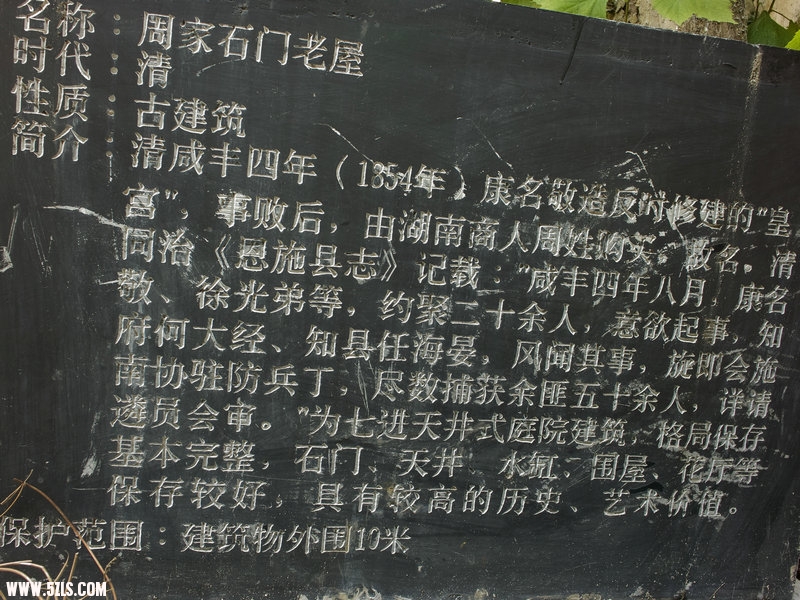 名称：周家石门老屋
时代：清
性质：古建筑
简介：清咸丰四年（1854年）康名敬造反时修建的"皇
宫"，事败后，由湖南商人周姓购买，故名。清
同治《恩施县志》记载："咸丰四年八月，康名
敬、徐光弟等，约聚二十余人，意欲起事，知
府何大经、知县任海晏，风闻其事，旋即会施
南协驻防兵丁，尽数捕获余匪五十余人，详请
遴员会审。"为七进天井式庭院建筑，格局保存
基本完整，石门、天井、水缸、围屋、花厅等
保存较好，具有较高的历史、艺术价值。
保护范围：建筑物外围10米
WWW.5ZLS.COM